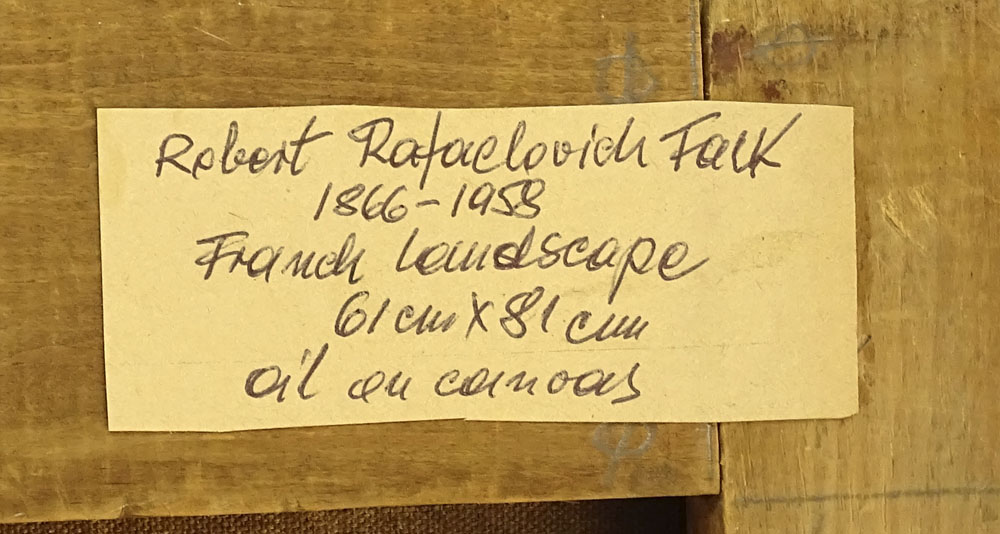 Robert Rafaelovich Falk
1866-1958
Franch landscape
61cm X 81 cm
oil on canvas